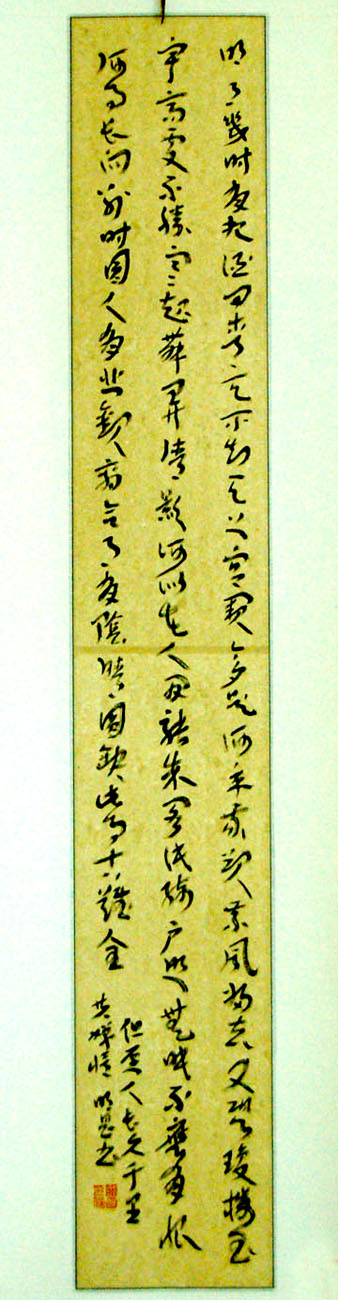 明月幾时有把酒问青天不知天上宫阙今夕是何年我欲乘风归去又恐琼楼玉
宇高处不胜寒起舞弄清影何似在人间转朱阁低绮户照无眠不应有恨
何事长向别时圆人有悲欢离合月有阴晴圆缺此事古难全
但愿人长久千里
共婵娟 明